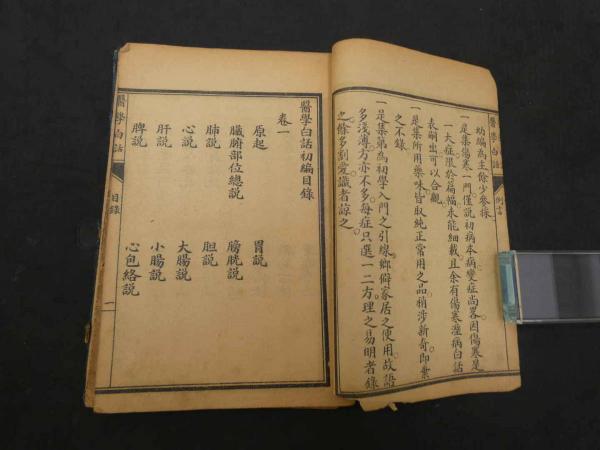 醫學白話
例言
幼編為主餘少參採
一是集傷寒一門僅說初病本病變症尚畧因傷寒是
一大症限於篇幅未能細載且余有傷寒溼病白話
表嗣出可以合觀
一是集所用藥味皆取純正常用之品稍涉新奇即棄
之不錄
一是集第為初學入門之引線鄉僻家居之使用故語
多淺薄方亦不多每症只選一二方理之易明者錄
之餘多割愛識者諒之
醫學白話初編目錄
卷一
原起 胃說
臟腑部位總說 膀胱說
肺說 胆說
心說 大腸說
肝說 小腸說
脾說 心包絡說
醫學白話
目錄
一